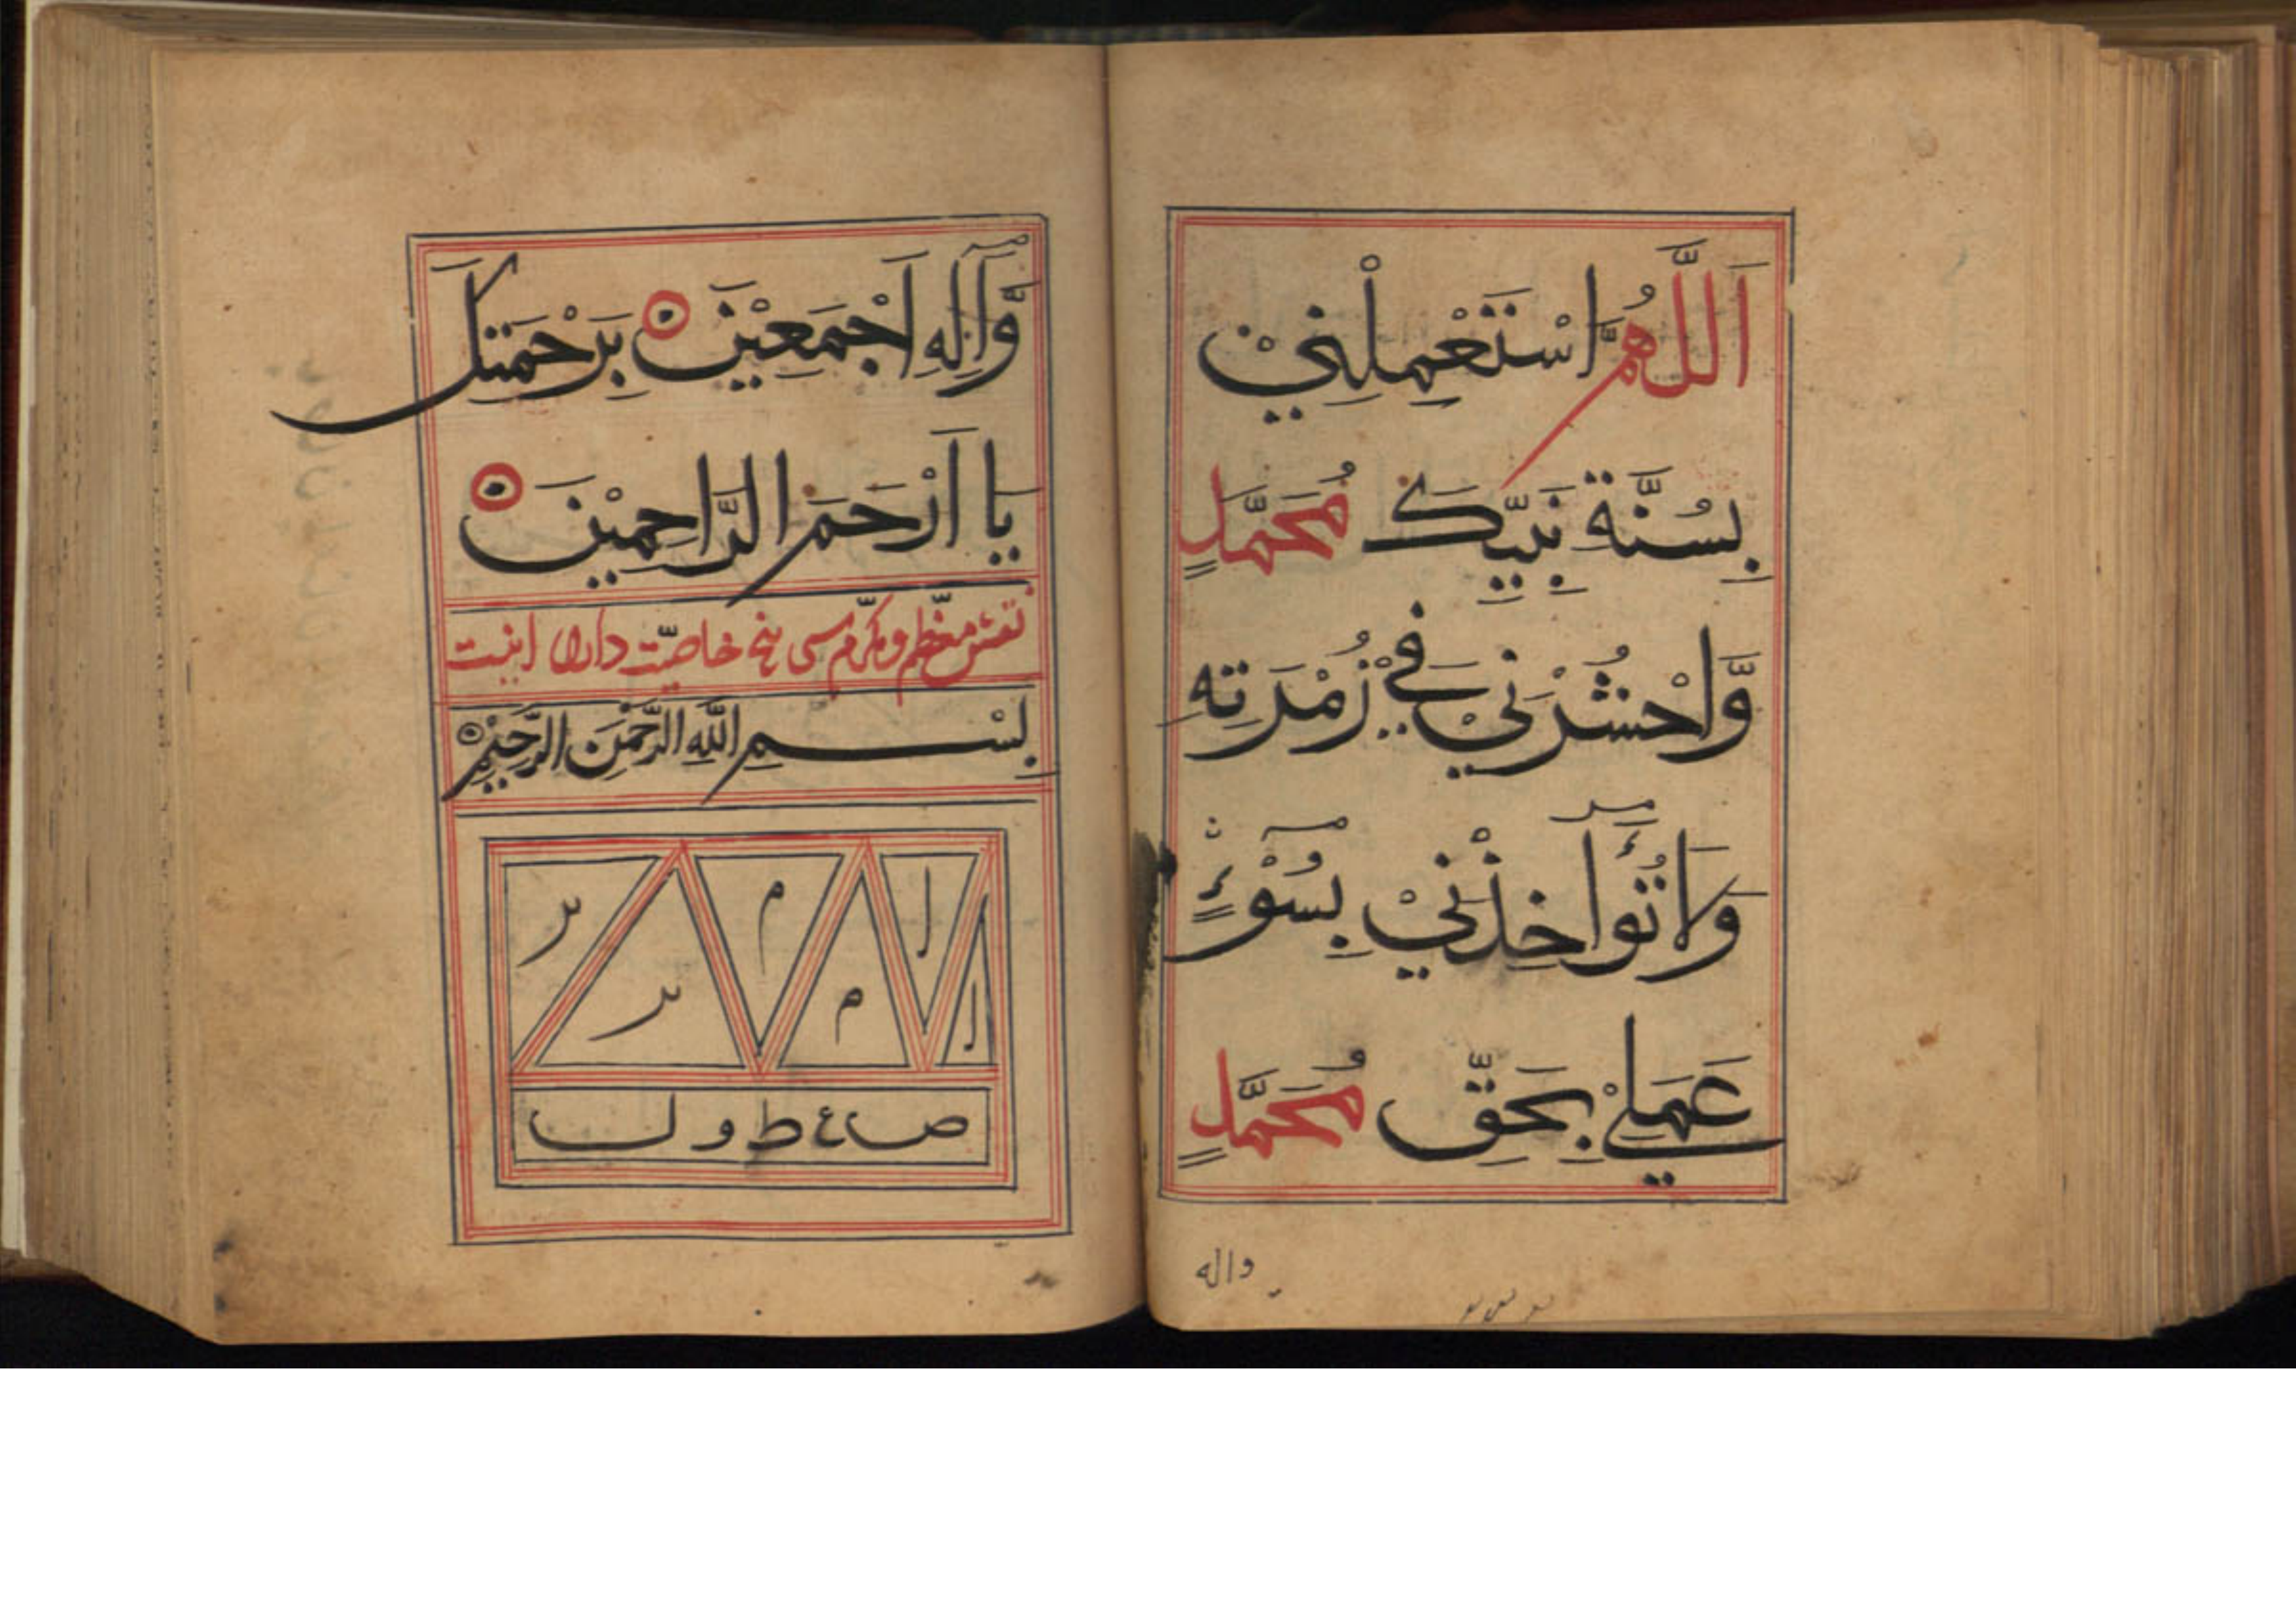 اَللّٰهُمَّ اسْتَعْمِلْنِيْ
بِسُنَّةِ نَبِيِّكَ مُحَمَّدٍ
وَّاحْشُرْنِيْ فِيْ زُمْرَتِهِ
وَلَا تُؤَاخِذْنِيْ بِسُوْءٍ
عَمَلِيْ بِحَقِّ مُحَمَّدٍ
واله
وَّآلِهِ اَجْمَعِيْنَ بِرَحْمَتِكَ
يَا اَرْحَمَ الرَّاحِمِيْنَ
نقش معظّم و مکرّم سی پنج خاصیّت دارد اینست
بِسْمِ اللّٰهِ الرَّحْمٰنِ الرَّحِيْمِ
ا م ر
ا م ر
ص ع ط و ل